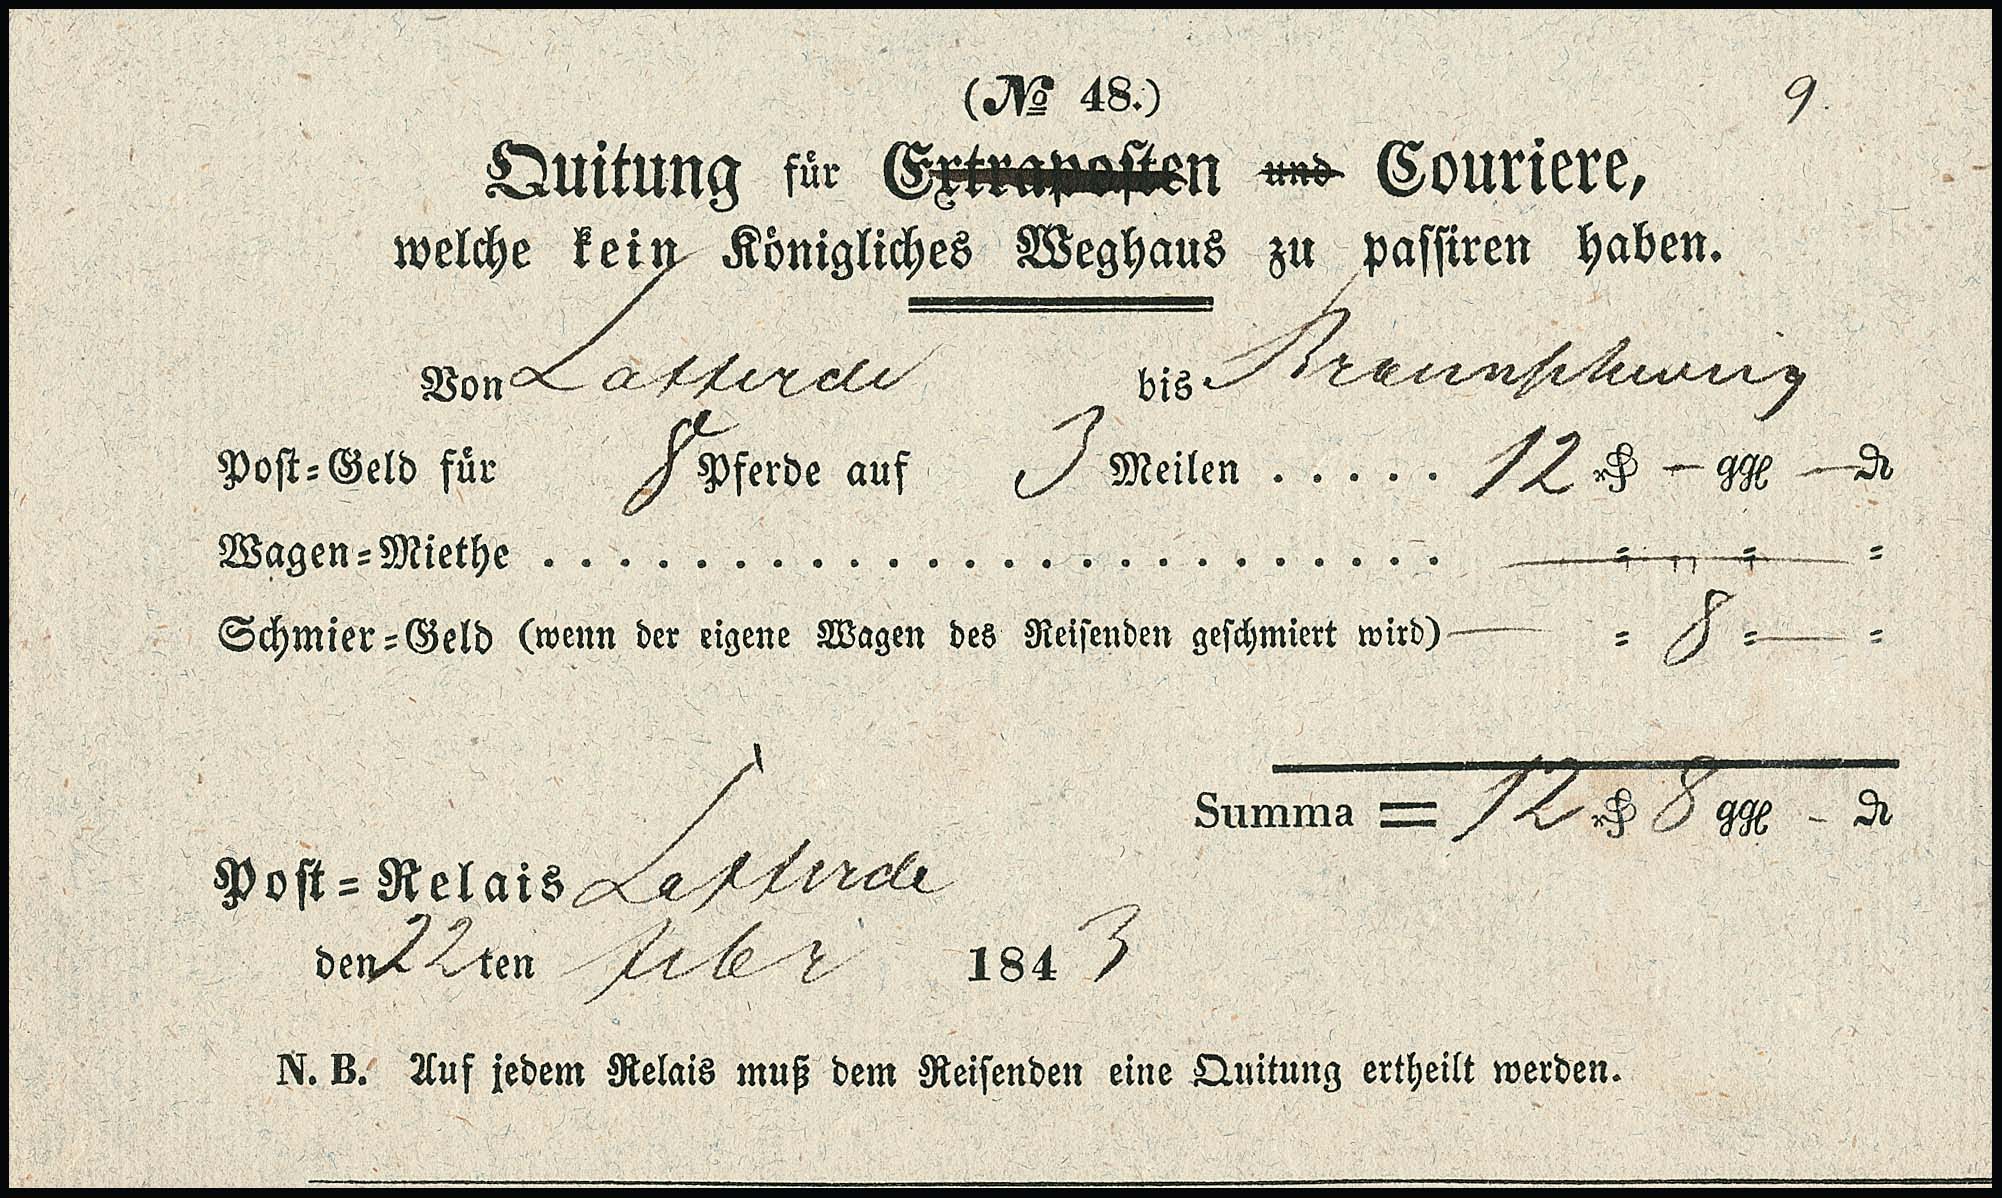 (No 48.) 9.
Quitung für Extraposten und Couriere,
welche kein Königliches Weghaus zu passiren haben.
Von Latferde bis Braunschweig
Post=Geld für 8 Pferde auf 3 Meilen . . . . . 12 rℓ — ggl — ₰
Wagen=Miethe . . . . . . . . . . . . . . . . . . . . . . . . — = " = — =
Schmier=Geld (wenn der eigene Wagen des Reisenden geschmiert wird) — = 8 = — =
Summa = 12 rℓ 8 ggl - ₰
Post=Relais Latferde
den 22ten Febr 1843
N. B. Auf jedem Relais muß dem Reisenden eine Quitung ertheilt werden.